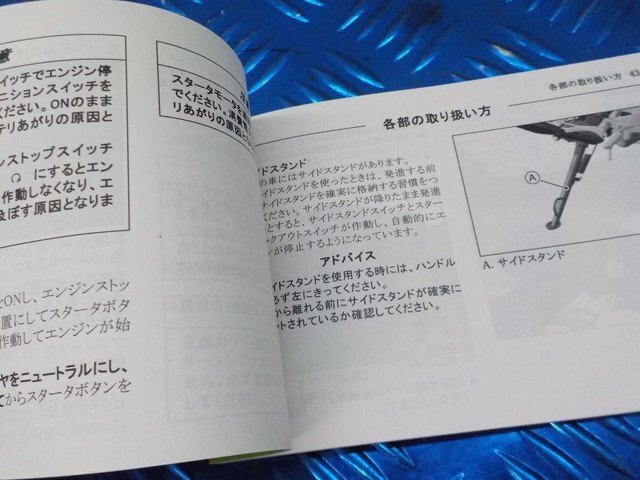 意
イッチでエンジン停
ニションスイッチを
ください。ONのまま
テリあがりの原因と
ンストップスイッチ
にするとエン
作動しなくなり、エ
及ぼす原因となりま
をONし、エンジンストッ
置にしてスタータボタ
作動してエンジンが始
ヤをニュートラルにし、
てからスタータボタンを
スタータモータを
でください。消費
リあがりの原因
各部の取り扱い方 43
各部の取り扱い方
イドスタンド
の車にはサイドスタンドがあります。
イドスタンドを使ったときは、発進する前
サイドスタンドを確実に格納する習慣をつ
ください。サイドスタンドが降りたまま発進
とすると、サイドスタンドスイッチとスター
ックアウトスイッチが作動し、自動的にエ
ンが停止するようになっています。
アドバイス
イドスタンドを使用する時には、ハンドル
必ず左にきってください。
から離れる前にサイドスタンドが確実に
ットされているか確認してください。
A
A. サイドスタンド